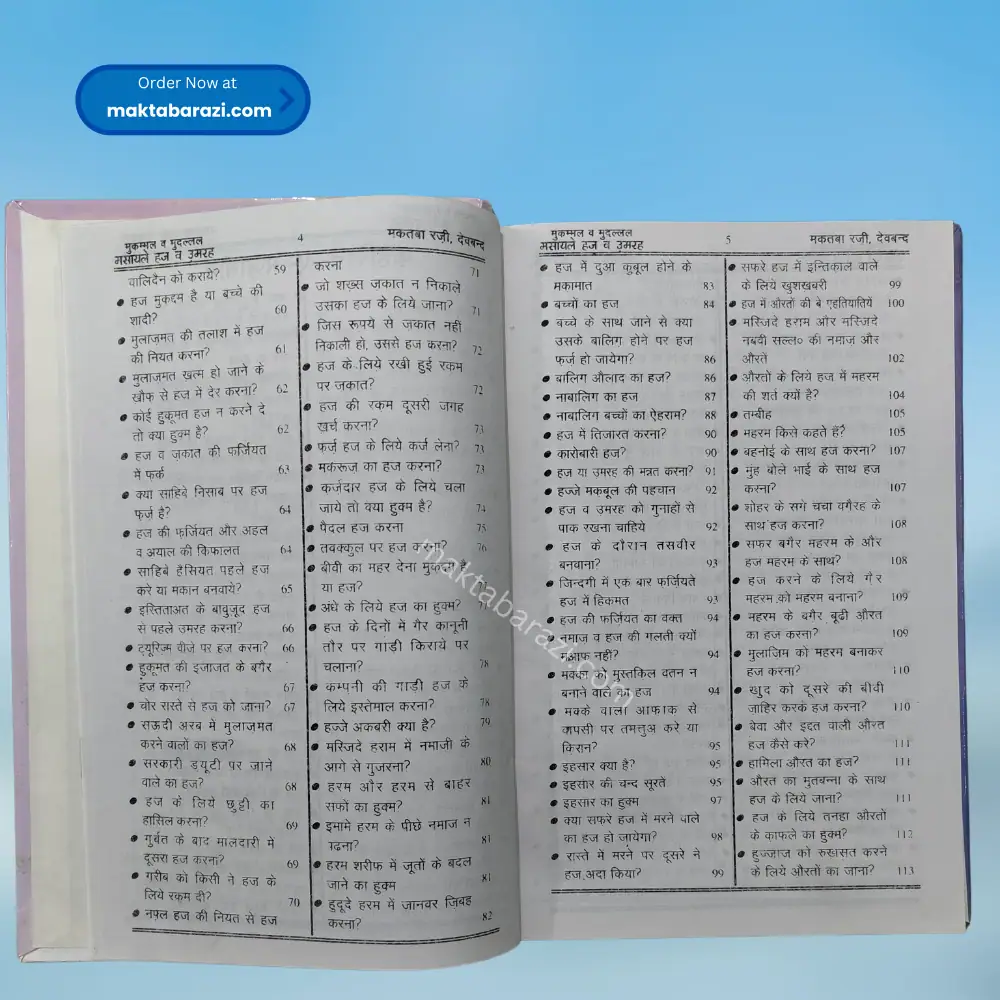 Order Now at
maktabarazi.com
मुकम्मल व मुदल्लल
मसायले हज व उमरह
4
मकतबा रज़ी, देवबन्द
वालिदैन को कराये? 59
● हज मुकद्दम है या बच्चे की
शादी? 60
● मुलाजमत की तलाश में हज
की नियत करना? 61
● मुलाजमत खत्म हो जाने के
खौफ से हज में देर करना? 62
● कोई हुकूमत हज न करने दे
तो क्या हुक्म है? 62
● हज व ज़कात की फर्जियत
में फर्क 63
● क्या साहिबे निसाब पर हज
फर्ज़ है? 64
● हज की फर्जियत और अहल
व अयाल की किफालत 64
● साहिबे हैसियत पहले हज
करे या मकान बनवाये? 65
● इस्तिताअत के बावुजूद हज
से पहले उमरह करना? 66
● टयूरिज्म वीज़े पर हज करना? 66
● हुकूमत की इजाजत के बगैर
हज करना? 67
● चोर रास्ते से हज को जाना? 67
● सऊदी अरब में मुलाजमत
करने वालों का हज? 68
● सरकारी डयूटी पर जाने
वाले का हज? 68
● हज के लिये छुट्टी का
हासिल करना? 69
● गुर्बत के बाद मालदारी में
दूसरा हज करना? 69
● ग़रीब को किसी ने हज के
लिये रक़म दी? 70
● नफ़्ल हज की नियत से हज
करना 71
● जो शख्स जकात न निकाले
उसका हज के लिये जाना? 71
● जिस रूपये से ज़कात नहीं
निकाली हो, उससे हज करना? 72
● हज के लिये रखी हुई रकम
पर जकात? 72
● हज की रकम दूसरी जगह
खर्च करना? 73
● फर्ज़ हज के लिये कर्ज लेना? 73
● मकरूज का हज करना? 73
● कर्ज़दार हज के लिये चला
जाये तो क्या हुक्म है? 74
● पैदल हज करना 75
● तवक्कुल पर हज करना? 76
● बीवी का महर देना मुकद्दम है
या हज?
● अंधे के लिये हज का हुक्म?
● हज के दिनों में गैर कानूनी
तौर पर गाड़ी किराये पर
चलाना? 78
● कम्पनी की गाड़ी हज के
लिये इस्तेमाल करना? 78
● हज्जे अकबरी क्या है? 79
● मस्जिदे हराम में नमाजी के
आगे से गुजरना? 80
● हरम और हरम से बाहर
सफों का हुक्म? 81
● इमामे हरम के पीछे नमाज न
पढना? 81
● हरम शरीफ में जूतों के बदल
जाने का हुक्म 81
● हुदूदे हरम में जानवर ज़िबह
करना? 82
मुकम्मल व मुदल्लल
मसायले हज व उमरह
5
मकतबा रज़ी, देवबन्द
● हज में दुआ कुबूल होने के
मकामात 83
● बच्चों का हज 84
● बच्चे के साथ जाने से क्या
उसके बालिग होने पर हज
फर्ज़ हो जायेगा? 86
● बालिग औलाद का हज? 86
● नाबालिग का हज 87
● नाबालिग बच्चों का ऐहराम? 88
● हज में तिजारत करना? 90
● कारोबारी हज? 90
● हज या उमरह की मन्नत करना? 91
● हज्जे मकबूल की पहचान 92
● हज व उमरह को गुनाहों से
पाक रखना चाहिये 92
● हज के दौरान तसवीर
बनवाना? 93
● ज़िन्दगी में एक बार फर्जियते
हज में हिकमत 93
● हज की फर्जियत का वक्त 94
● नमाज व हज की गलती क्यों
मआफ नहीं? 94
● मक्का को मुस्तकिल वतन न
बनाने वाले का हज 94
● मक्के वाला आफाक से
वापसी पर तमत्तुअ करे या
किरान? 95
● इहसार क्या है? 95
● इहसार की चन्द सूरते 95
● इहसार का हुक्म 97
● क्या सफरे हज में मरने वाले
का हज हो जायेगा? 98
● रास्ते में मरने पर दूसरे ने
हज अदा किया? 99
● सफरे हज में इन्तिकाल वाले
के लिये खुशखबरी 99
● हज में औरतों की बे एहतियातियें 100
● मस्जिदे हराम और मस्जिदे
नबवी सल्ल० की नमाज और
औरते 102
● औरतों के लिये हज में महरम
की शर्त क्यों है? 104
● तम्बीह 105
● महरम किसे कहते हैं? 105
● बहनोई के साथ हज करना? 107
● मुंह बोले भाई के साथ हज
करना? 107
● शोहर के सगे चचा वगैरह के
साथ हज करना? 108
● सफर बगैर महरम के और
हज महरम के साथ? 108
● हज करने के लिये गैर
महरम को महरम बनाना? 109
● महरम के बगैर बूढी औरत
का हज करना? 109
● मुलाज़िम को महरम बनाकर
हज करना? 110
● खुद को दूसरे की बीवी
जाहिर करके हज करना? 110
● बेवा और इद्दत वाली औरत
हज कैसे करे? 111
● हामिला औरत का हज? 111
● औरत का मुतबन्ना के साथ
हज के लिये जाना? 111
● हज के लिये तनहा औरतों
के काफले का हुक्म? 112
● हुज्जाज को रुखसत करने
के लिये औरतों का जाना? 113
maktabarazi.com